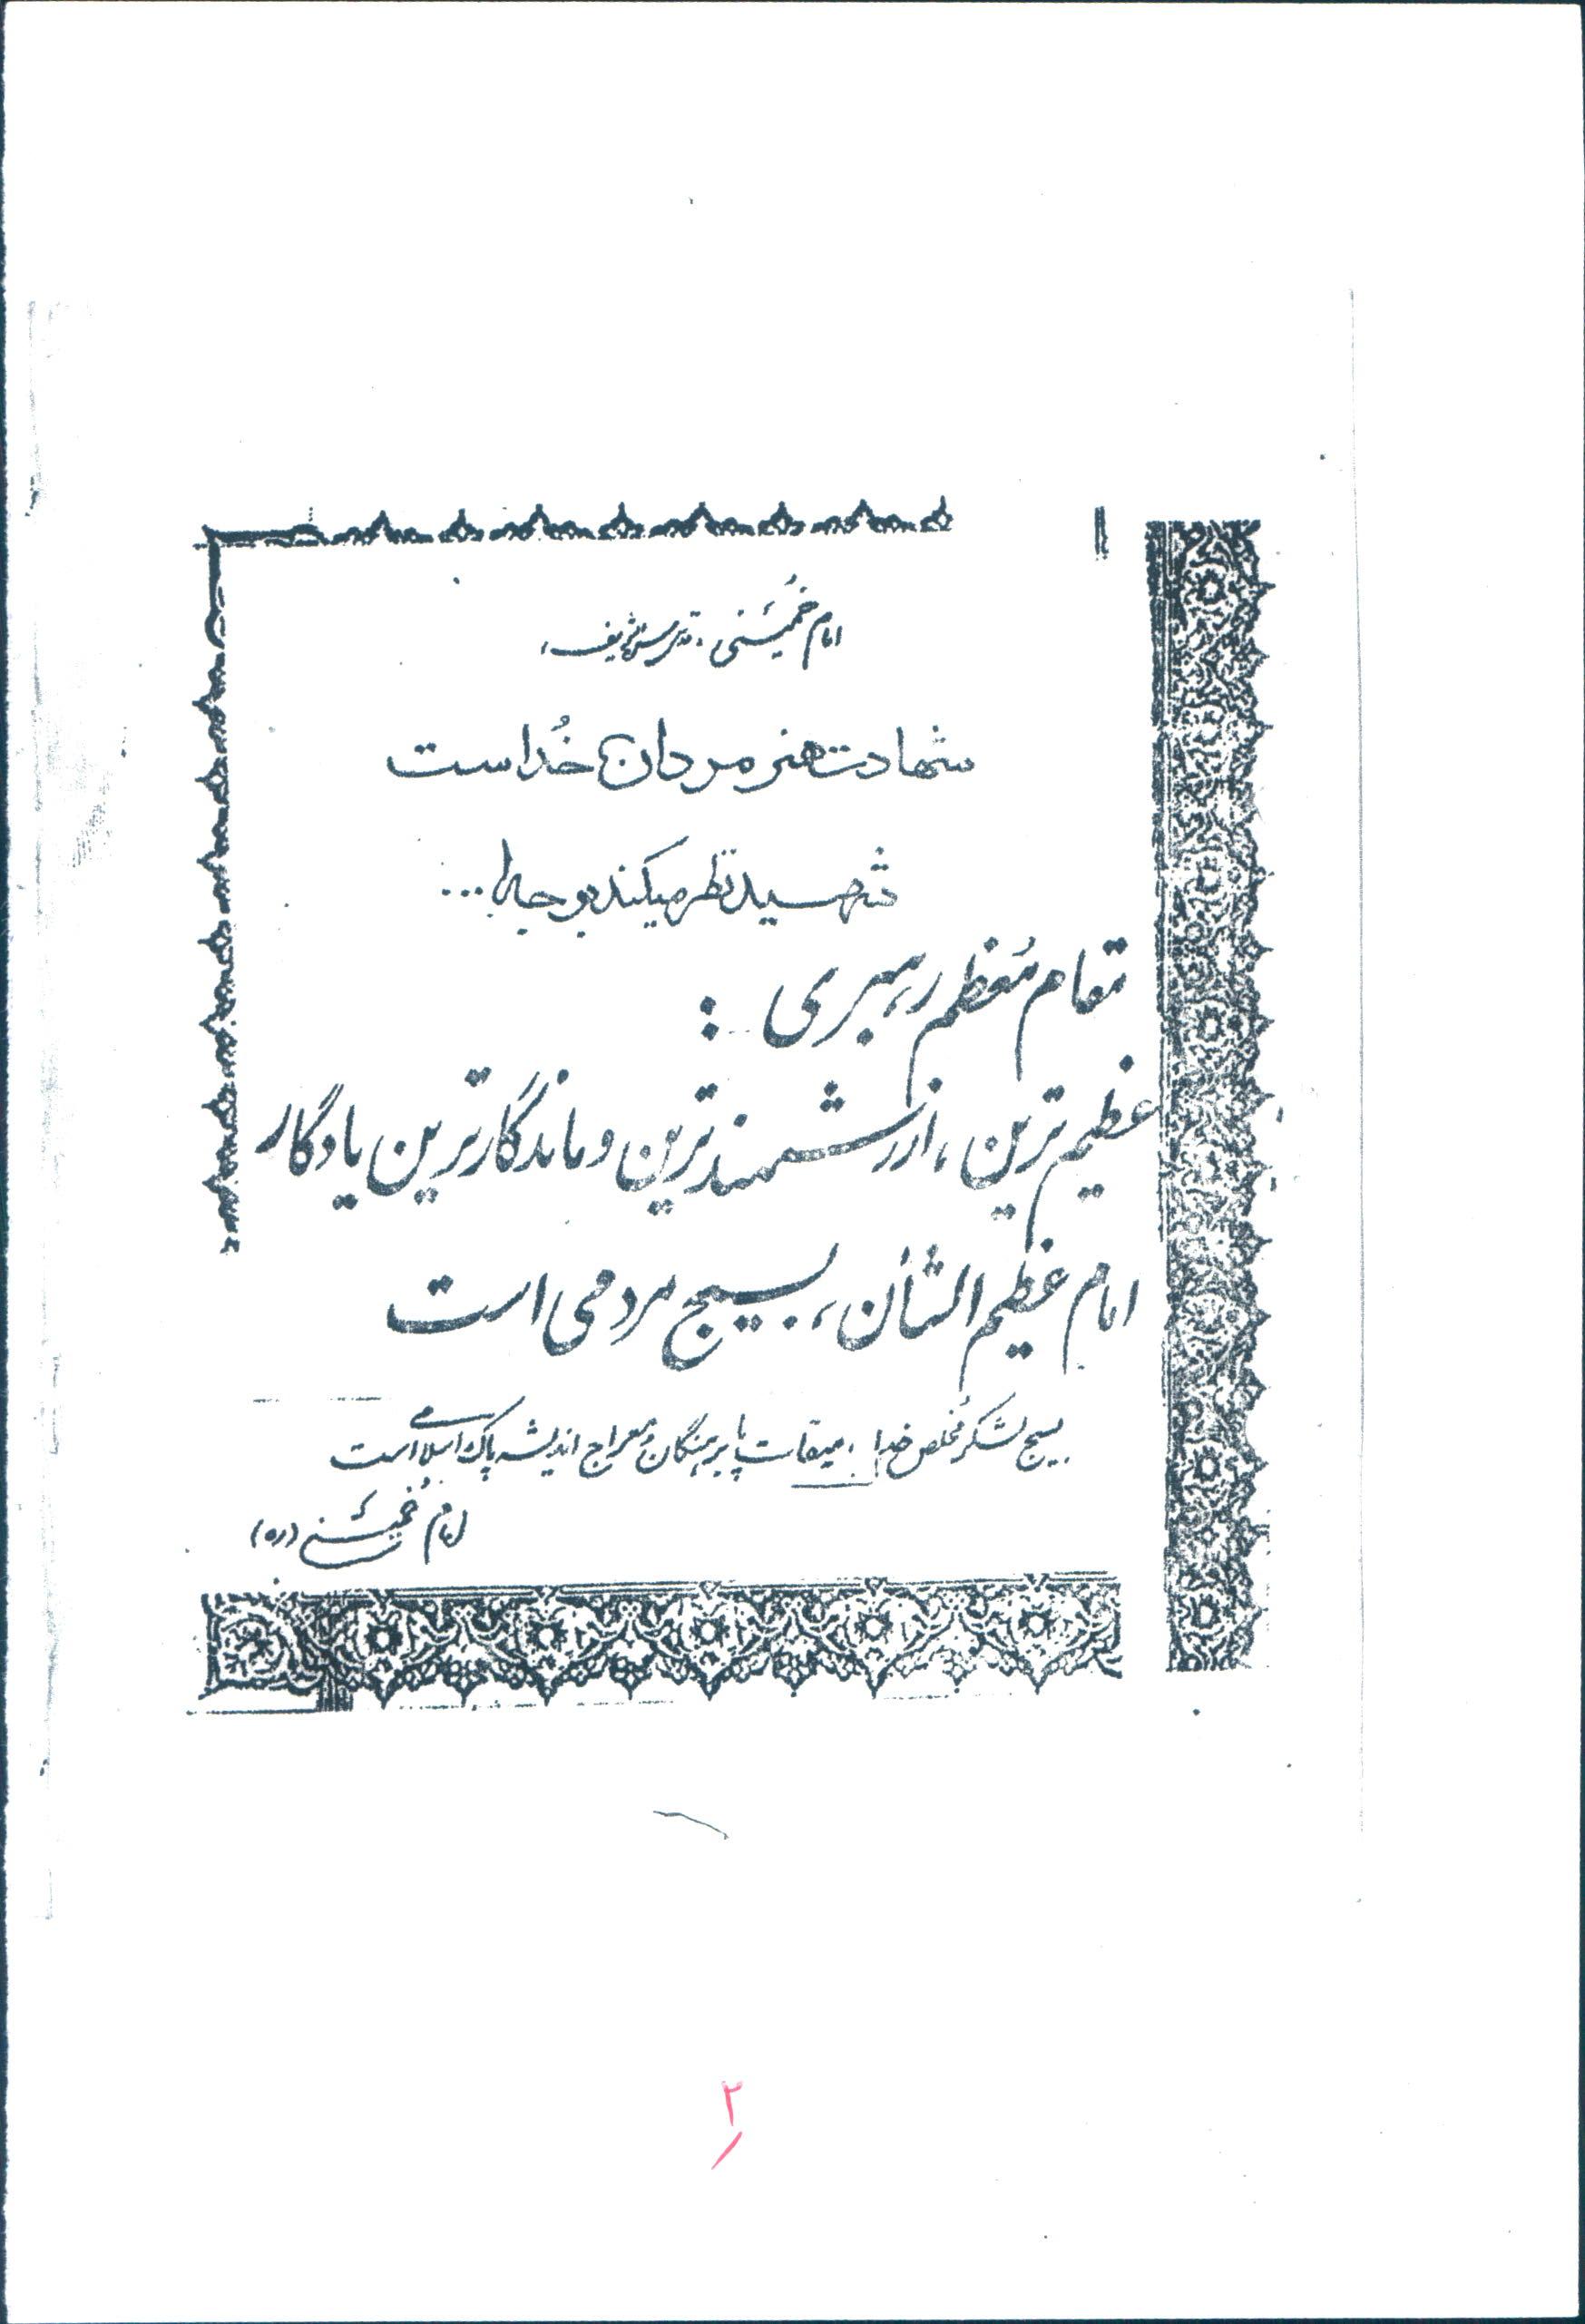 امام خمینی «قدس سره شریف»
شهادت هنر مردان خداست
شهید نظر میکند بوجه الله ...
مقام معظم رهبری :
عظیم ترین، ارزشمندترین و ماندگارترین یادگار
امام عظیم الشأن، بسیج مردمی است
بسیج لشکر مخلص خدا، میقات پابرهنگان و معراج اندیشه پاک اسلامی است
امام خمینی (ره)
۲